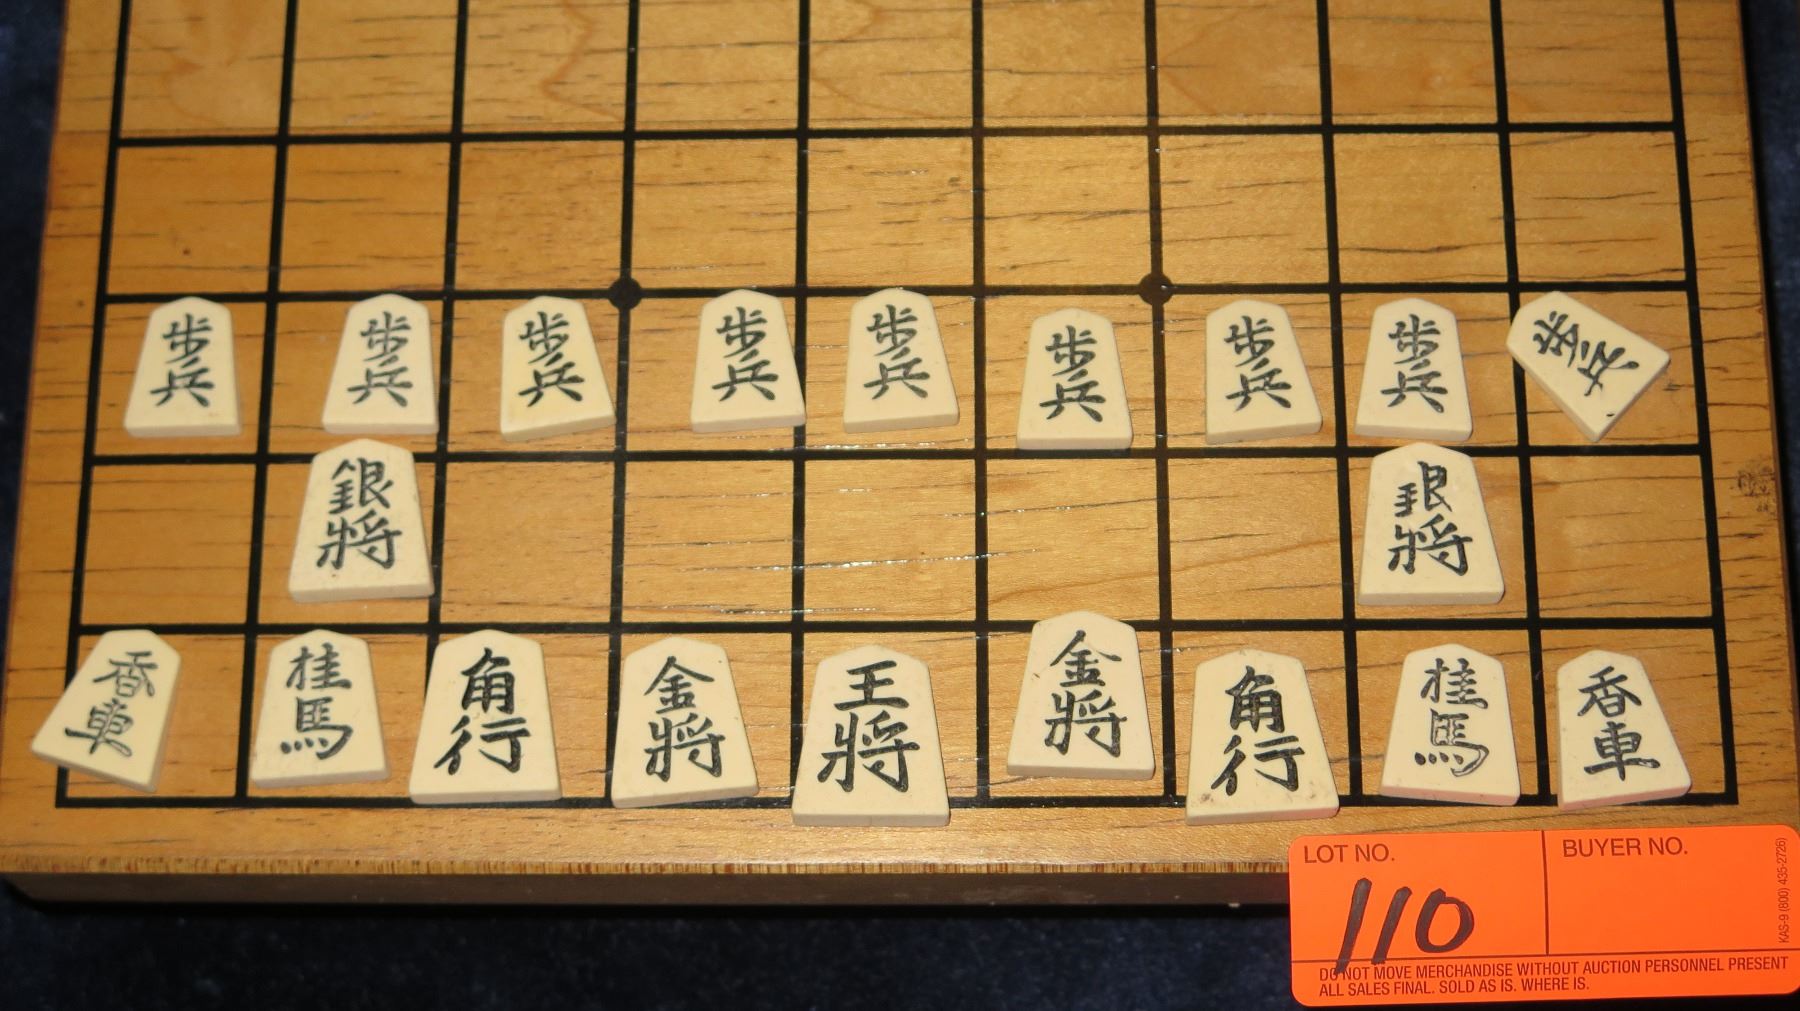 歩兵 歩兵 歩兵 歩兵 歩兵 歩兵 歩兵 歩兵 歩兵
銀將 銀將
香車 桂馬 角行 金將 王將 金將 角行 桂馬 香車
LOT NO. BUYER NO.
110
KAS-9 (800) 435-2726)
DO NOT MOVE MERCHANDISE WITHOUT AUCTION PERSONNEL PRESENT
ALL SALES FINAL. SOLD AS IS. WHERE IS.